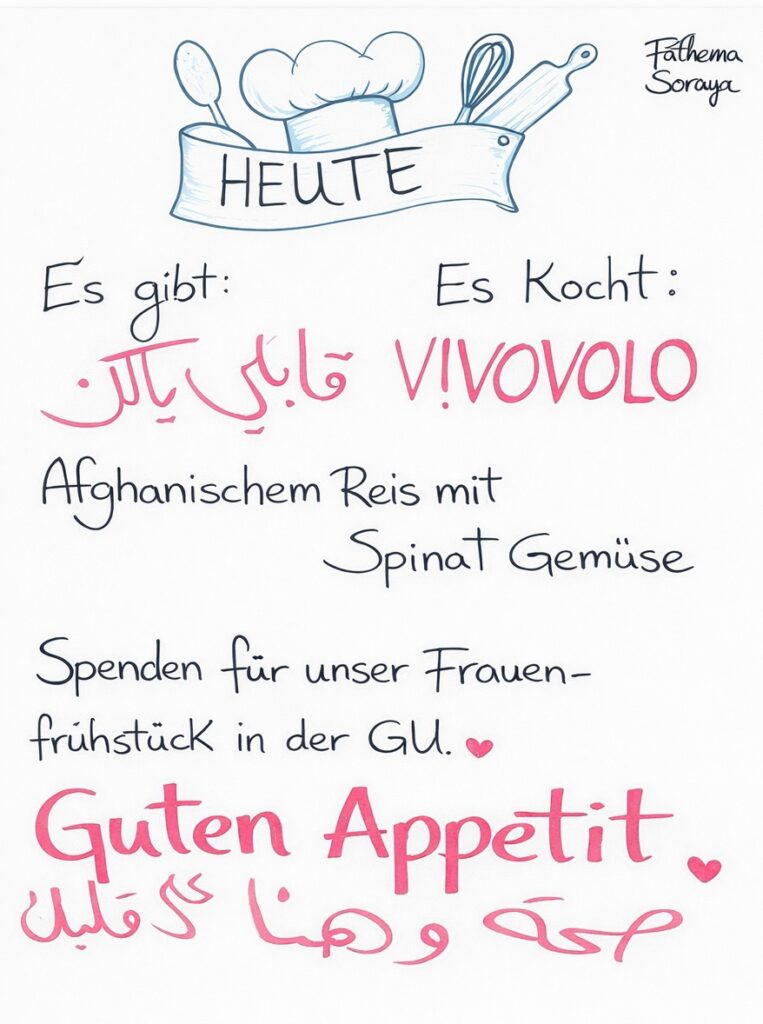 Fáthema
Soraya
HEUTE
Es gibt: Es Kocht:
قابلي يالن V!VOVOLO
Afghanischem Reis mit
Spinat Gemüse
Spenden für unser Frauen-
frühstück in der GU.
Guten Appetit
صحة و هنا